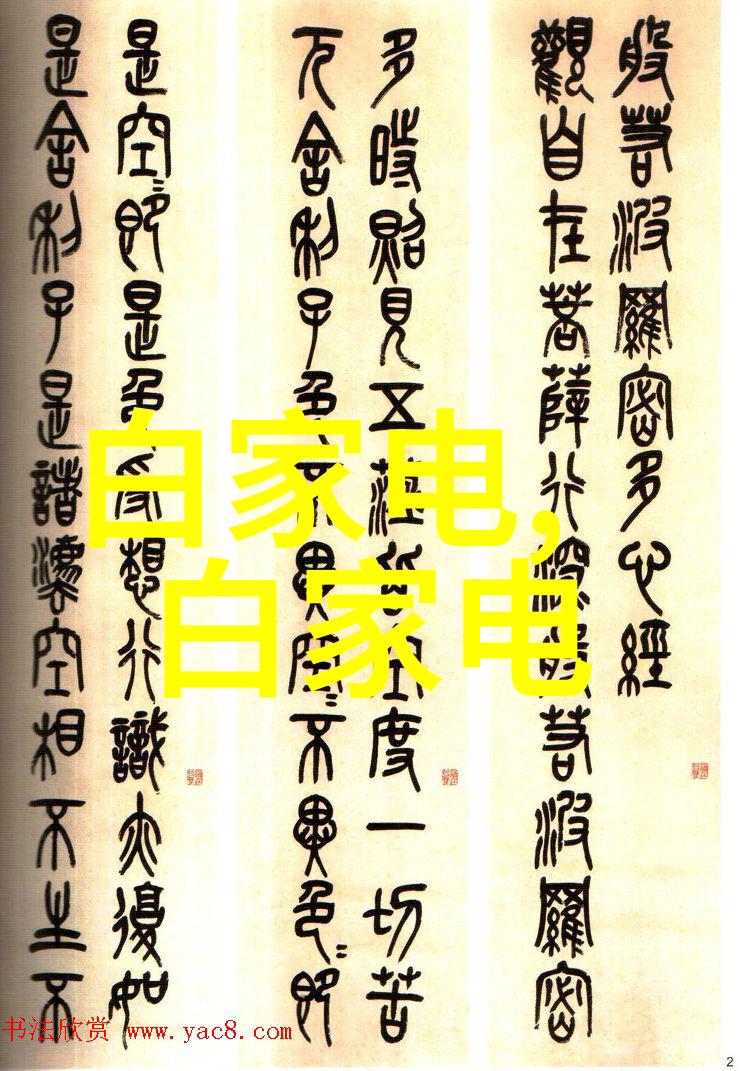 般若波羅密多心經
觀自在菩薩行深般若波羅密
多時照見五蘊皆空度一切苦
厄舍利子色不異空〻不異色〻即
是空〻即是色受想行識亦復如
是舍利子是諸法空相不生不
白家电,
白家电
书法欣赏 www.yac8.com
2